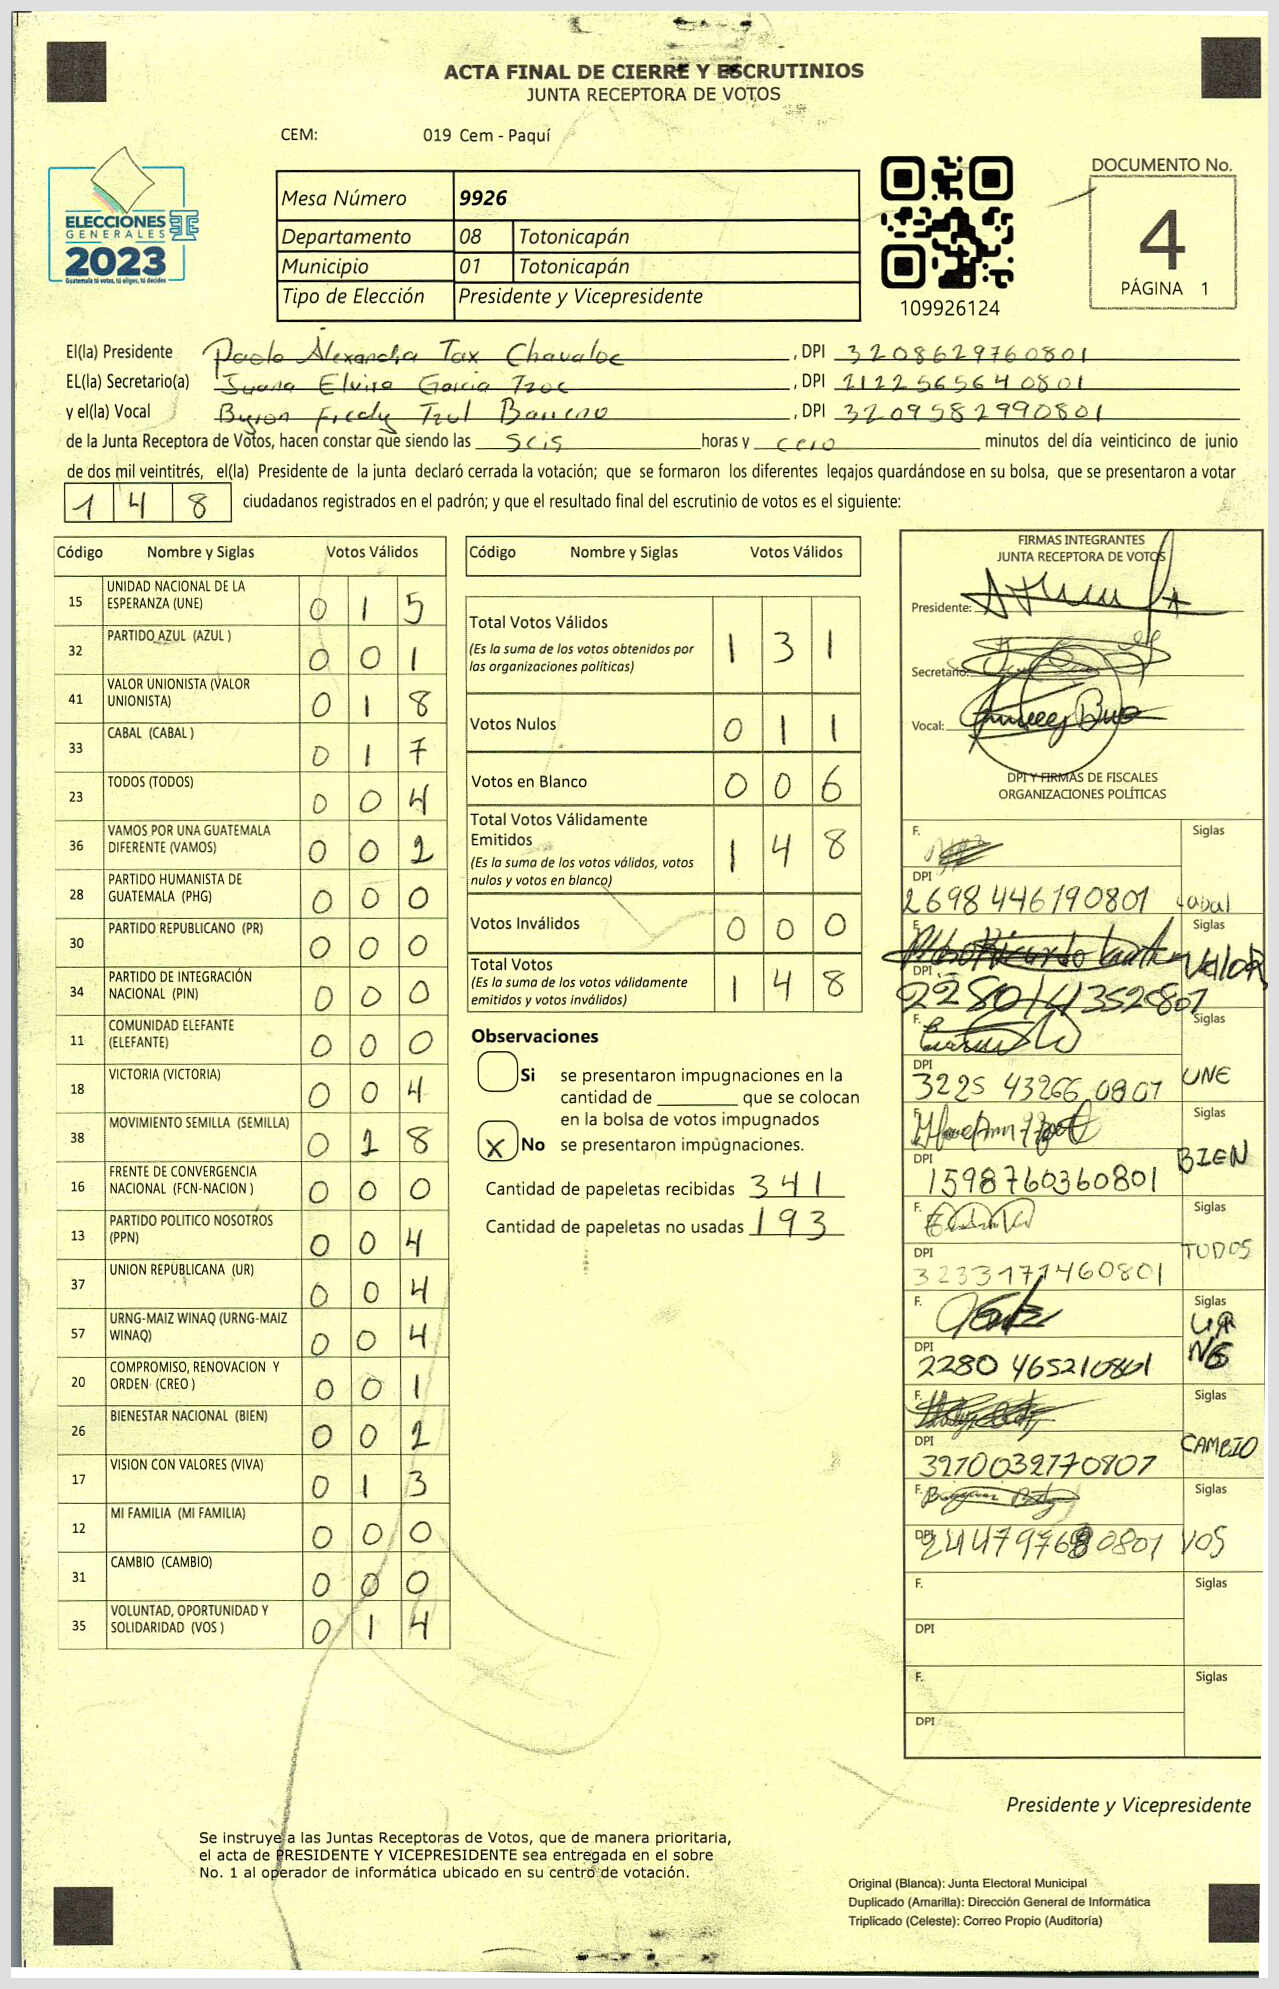 ACTA FINAL DE CIERRE Y ESCRUTINIOS
JUNTA RECEPTORA DE VOTOS
CEM: 019 Cem - Paquí
ELECCIONES
GENERALES
2023
Guatemala tú votas, tú eliges, tú decides
Mesa Número 9926
Departamento 08 Totonicapán
Municipio 01 Totonicapán
Tipo de Elección Presidente y Vicepresidente
109926124
DOCUMENTO No.
4
PÁGINA 1
El(la) Presidente Paola Alexandra Tax Chavaloc, DPI 3208629760801
EL(la) Secretario(a) Juana Elvira Garcia Tzoc, DPI 2122565640801
y el(la) Vocal Byron Fredy Tzul Barreno, DPI 3209582990801
de la Junta Receptora de Votos, hacen constar que siendo las seis horas y cero minutos del día veinticinco de junio
de dos mil veintitrés, el(la) Presidente de la junta declaró cerrada la votación; que se formaron los diferentes legajos quardándose en su bolsa, que se presentaron a votar
1 4 8 ciudadanos registrados en el padrón; y que el resultado final del escrutinio de votos es el siguiente:
Código Nombre y Siglas Votos Válidos
15 UNIDAD NACIONAL DE LA ESPERANZA (UNE) 0 1 5
32 PARTIDO AZUL (AZUL ) 0 0 1
41 VALOR UNIONISTA (VALOR UNIONISTA) 0 1 8
33 CABAL (CABAL ) 0 1 7
23 TODOS (TODOS) 0 0 4
36 VAMOS POR UNA GUATEMALA DIFERENTE (VAMOS) 0 0 2
28 PARTIDO HUMANISTA DE GUATEMALA (PHG) 0 0 0
30 PARTIDO REPUBLICANO (PR) 0 0 0
34 PARTIDO DE INTEGRACIÓN NACIONAL (PIN) 0 0 0
11 COMUNIDAD ELEFANTE (ELEFANTE) 0 0 0
18 VICTORIA (VICTORIA) 0 0 4
38 MOVIMIENTO SEMILLA (SEMILLA) 0 2 8
16 FRENTE DE CONVERGENCIA NACIONAL (FCN-NACION ) 0 0 0
13 PARTIDO POLITICO NOSOTROS (PPN) 0 0 4
37 UNION REPUBLICANA (UR) 0 0 4
57 URNG-MAIZ WINAQ (URNG-MAIZ WINAQ) 0 0 4
20 COMPROMISO, RENOVACION Y ORDEN (CREO ) 0 0 1
26 BIENESTAR NACIONAL (BIEN) 0 0 2
17 VISION CON VALORES (VIVA) 0 1 3
12 MI FAMILIA (MI FAMILIA) 0 0 0
31 CAMBIO (CAMBIO) 0 0 0
35 VOLUNTAD, OPORTUNIDAD Y SOLIDARIDAD (VOS ) 0 1 4
Código Nombre y Siglas Votos Válidos
Total Votos Válidos 1 3 1
(Es la suma de los votos obtenidos por
las organizaciones políticas)
Votos Nulos 0 1 1
Votos en Blanco 0 0 6
Total Votos Válidamente
Emitidos 1 4 8
(Es la suma de los votos válidos, votos
nulos y votos en blanco)
Votos Inválidos 0 0 0
Total Votos 1 4 8
(Es la suma de los votos válidamente
emitidos y votos inválidos)
Observaciones
Si se presentaron impugnaciones en la
cantidad de ________ que se colocan
en la bolsa de votos impugnados
X No se presentaron impugnaciones.
Cantidad de papeletas recibidas 341
Cantidad de papeletas no usadas 193
FIRMAS INTEGRANTES
JUNTA RECEPTORA DE VOTOS
Presidente:
Secretario:
Vocal:
DPI Y FIRMAS DE FISCALES
ORGANIZACIONES POLÍTICAS
F. Siglas
DPI
2698446190801 Cabal
F. Siglas
DPI VALOR
2280143520801
F. Siglas
DPI
3225 43266 0801 UNE
F. Siglas
DPI BIEN
1598760360801
F. Siglas
DPI TODOS
3233171460801
F. Siglas
DPI
2280 465210801
F. Siglas
DPI CAMBIO
3270032770807
F. Siglas
DPI VOS
F. Siglas
DPI
F. Siglas
DPI
Presidente y Vicepresidente
Se instruye a las Juntas Receptoras de Votos, que de manera prioritaria,
el acta de PRESIDENTE Y VICEPRESIDENTE sea entregada en el sobre
No. 1 al operador de informática ubicado en su centro de votación.
Original (Blanca): Junta Electoral Municipal
Duplicado (Amarilla): Dirección General de Informática
Triplicado (Celeste): Correo Propio (Auditoría)